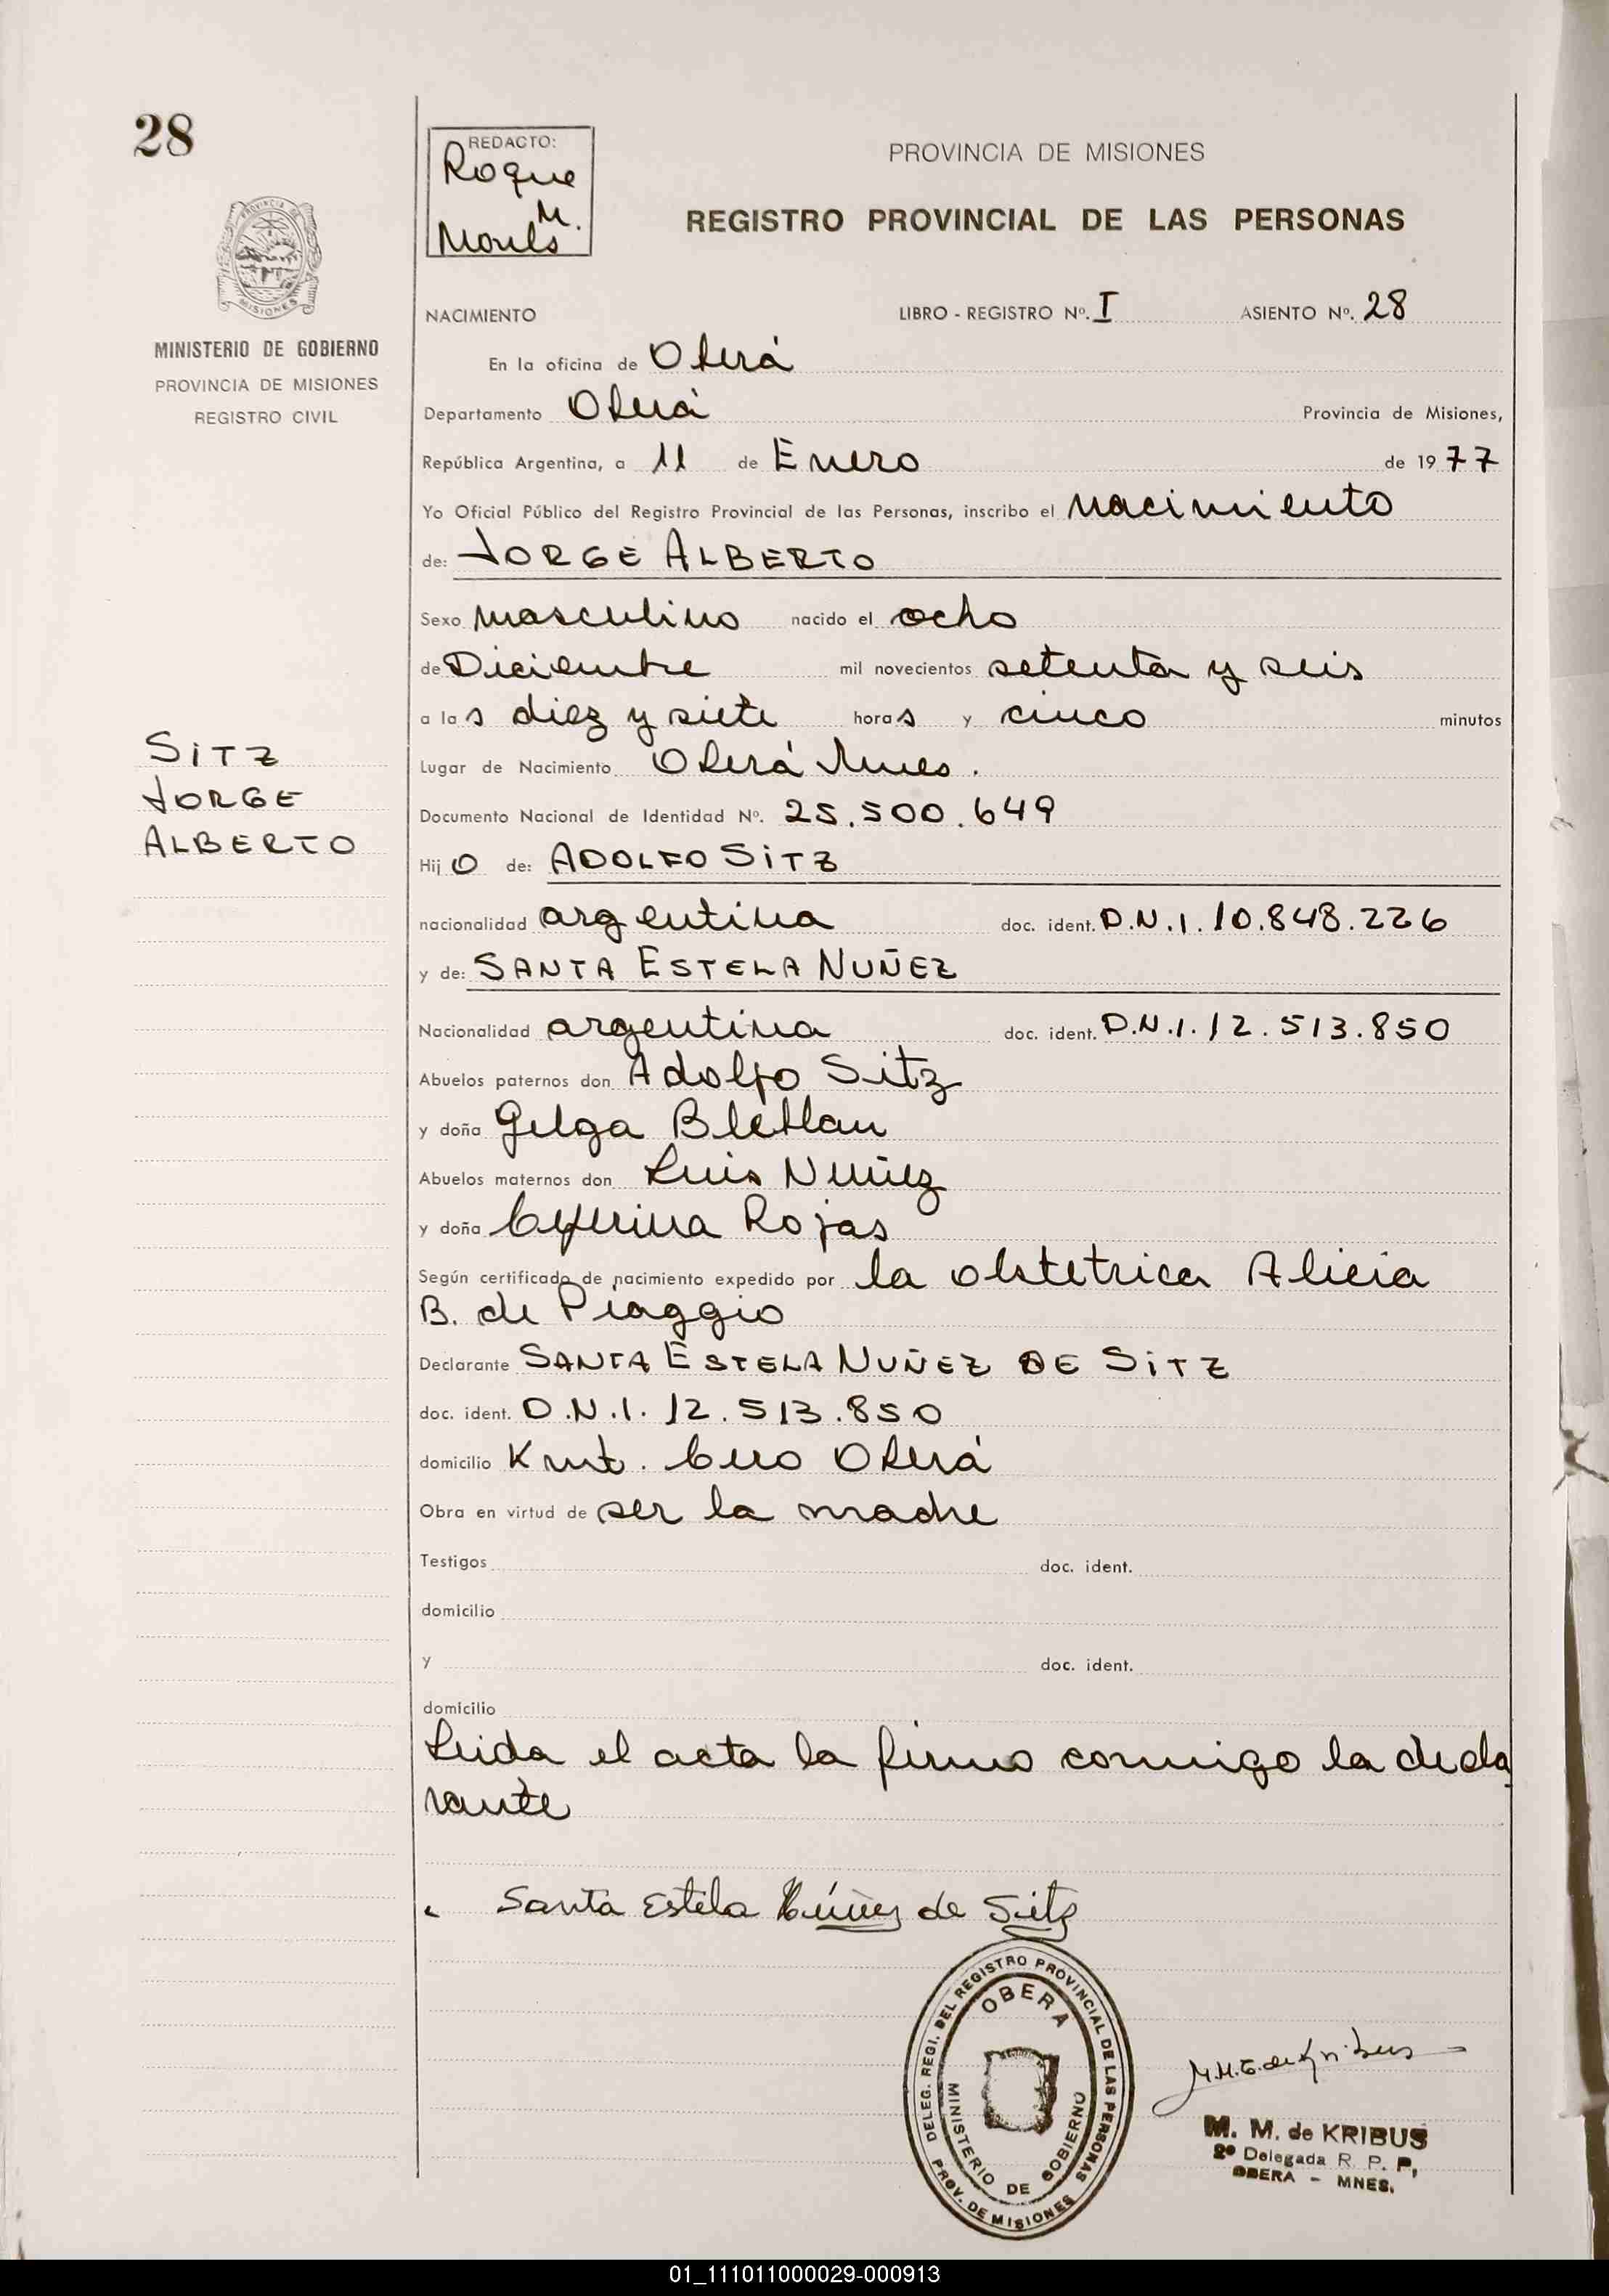 28
REDACTO:
Roque
M.
PROVINCIA DE MISIONES
REGISTRO PROVINCIAL DE LAS PERSONAS
PROVINCIA DE
MISIONES
MINISTERIO DE GOBIERNO
PROVINCIA DE MISIONES
REGISTRO CIVIL
NACIMIENTO LIBRO - REGISTRO Nº. I ASIENTO Nº. 28
En la oficina de Oberá
Departamento Oberá Provincia de Misiones,
República Argentina, a 11 de Enero de 1977
Yo Oficial Público del Registro Provincial de las Personas, inscribo el nacimiento
de: JORGE ALBERTO
Sexo masculino nacido el ocho
de Diciembre mil novecientos setenta y seis
a las diez y siete horas y cinco minutos
SITZ
JORGE
ALBERTO
Lugar de Nacimiento Oberá Mnes.
Documento Nacional de Identidad Nº. 25.500.649
Hijo de: ADOLFO SITZ
nacionalidad argentina doc. ident. D.N.I. 10.848.226
y de: SANTA ESTELA NUÑEZ
Nacionalidad argentina doc. ident. D.N.I. 12.513.850
Abuelos paternos don Adolfo Sitz
y doña Gelga
Abuelos maternos don Luis Nuñez
y doña Ceferina Rojas
Según certificado de nacimiento expedido por la obstetrica Alicia
B. de Piaggio
Declarante SANTA ESTELA NUÑEZ DE SITZ
doc. ident. D.N.I. 12.513.850
domicilio Kmt. Cero Oberá
Obra en virtud de ser la madre
Testigos doc. ident.
domicilio
y doc. ident.
domicilio
Leida el acta la firmo conmigo la decla
rante
Santa Estela Núñez de Sitz
DELEG. REGI. DEL REGISTRO PROVINCIAL DE LAS PERSONAS
PROV. DE MISIONES
OBERA
MINISTERIO DE GOBIERNO
M. M. de KRIBUS
2º Delegada R. P. P.
OBERA - MNES.
01_111011000029-000913